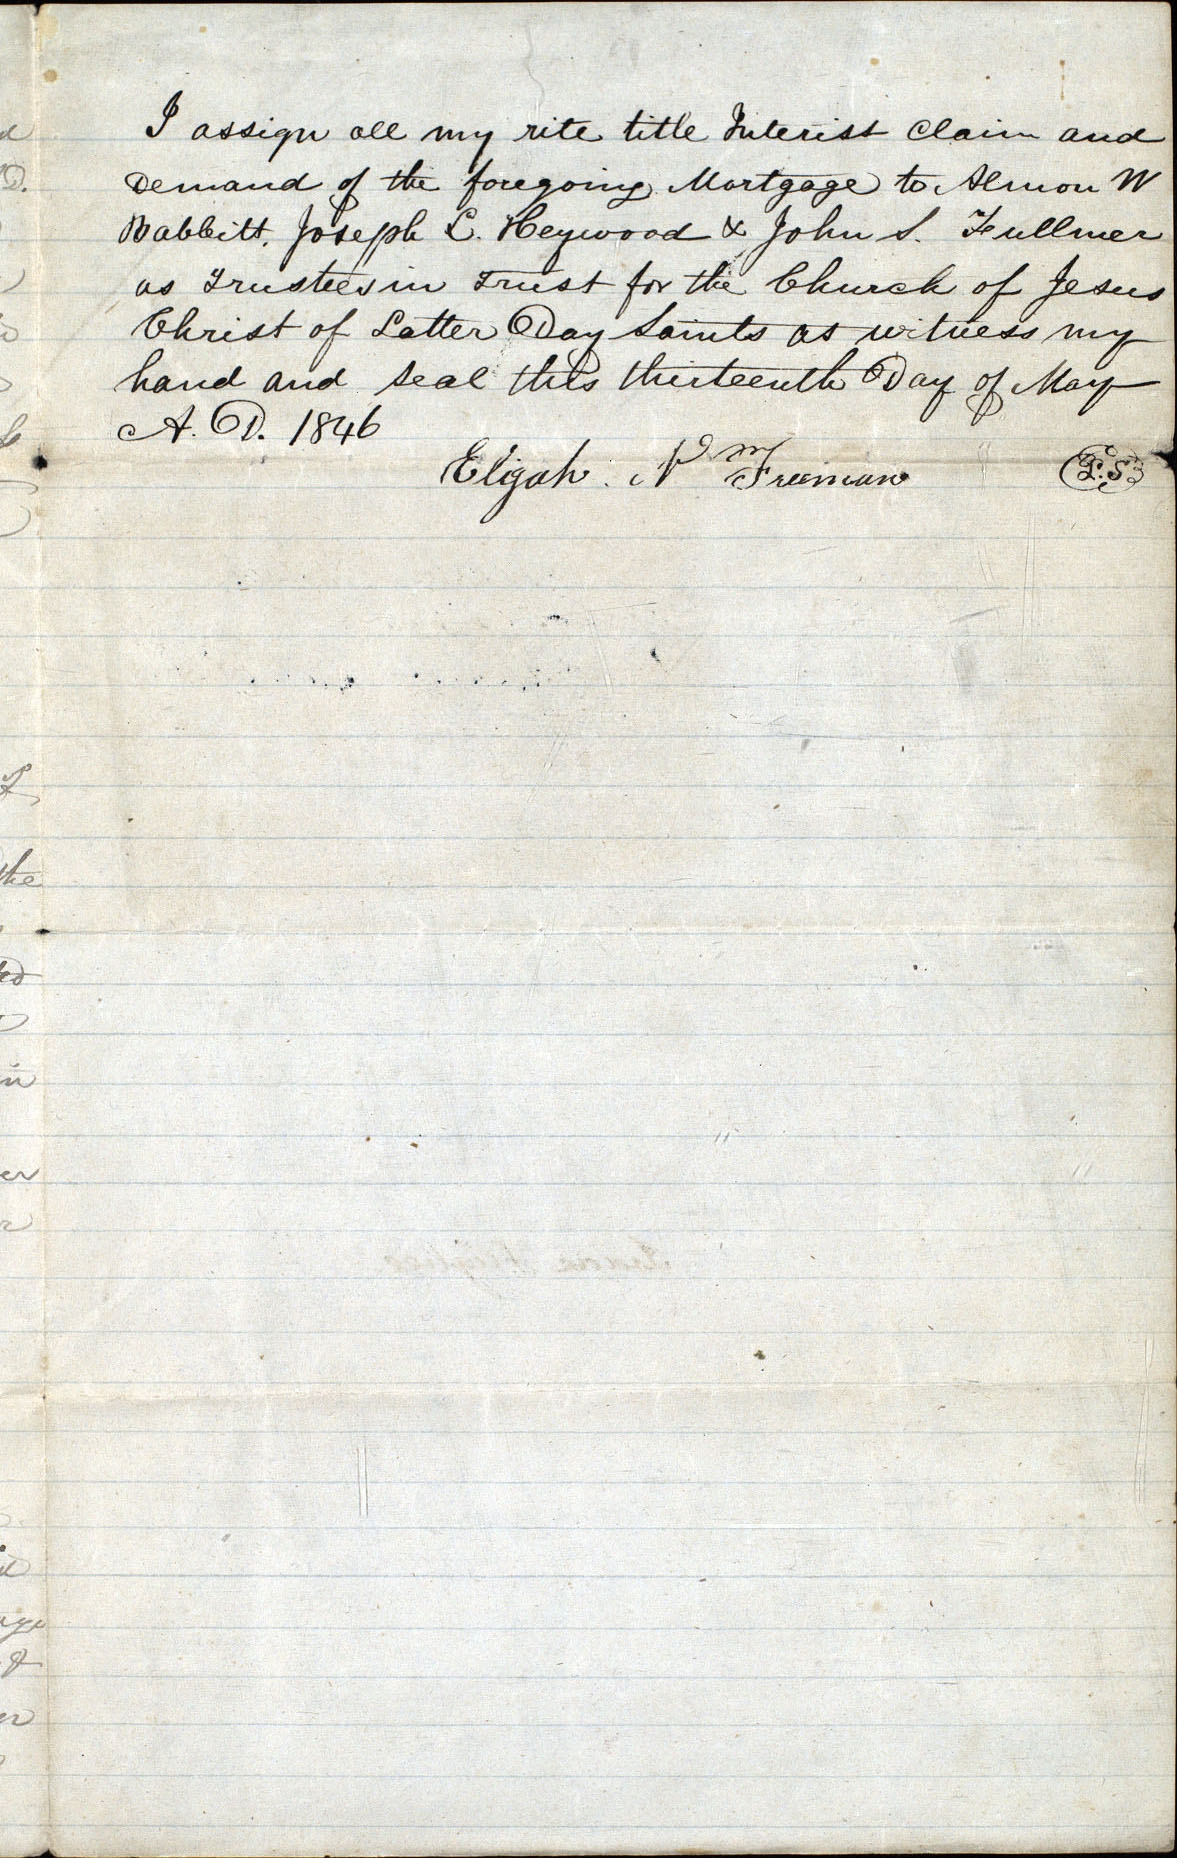 I assign all my rite title Interist Claim and
Demand of the foregoing Mortgage to Almon W
Babbitt, Joseph L. Heywood & John S. Fullmer
as Trustees in Trust for the Church of Jesus
Christ of Latter Day Saints as witness my
hand and seal this thirteenth Day of May
A. D. 1846
Elijah N Freeman L.S
the
in
er